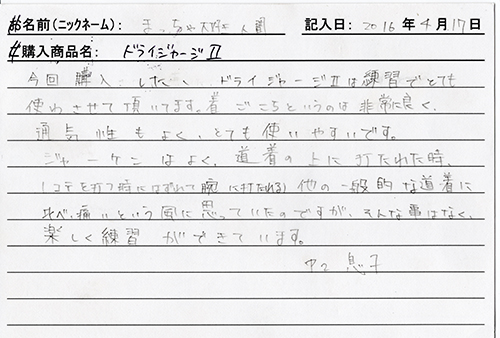 お名前(ニックネーム): まっちゃ大好き人間 記入日: 2016年4月17日
ご購入商品名: ドライジャージⅡ
今回購入した、ドライジャージⅡは練習でとても
使わさせて頂いてます。着ごこちというのは非常に良く、
通気性もよく、とても使いやすいです。
ジャーケンはよく、道着の上に打たれた時、
(コテを打つ時にはずれて腕に打たれる)他の一般的な道着に
比べ、痛いという風に思っていたのですが、そんな事はなく、
楽しく練習ができています。
中2 息子